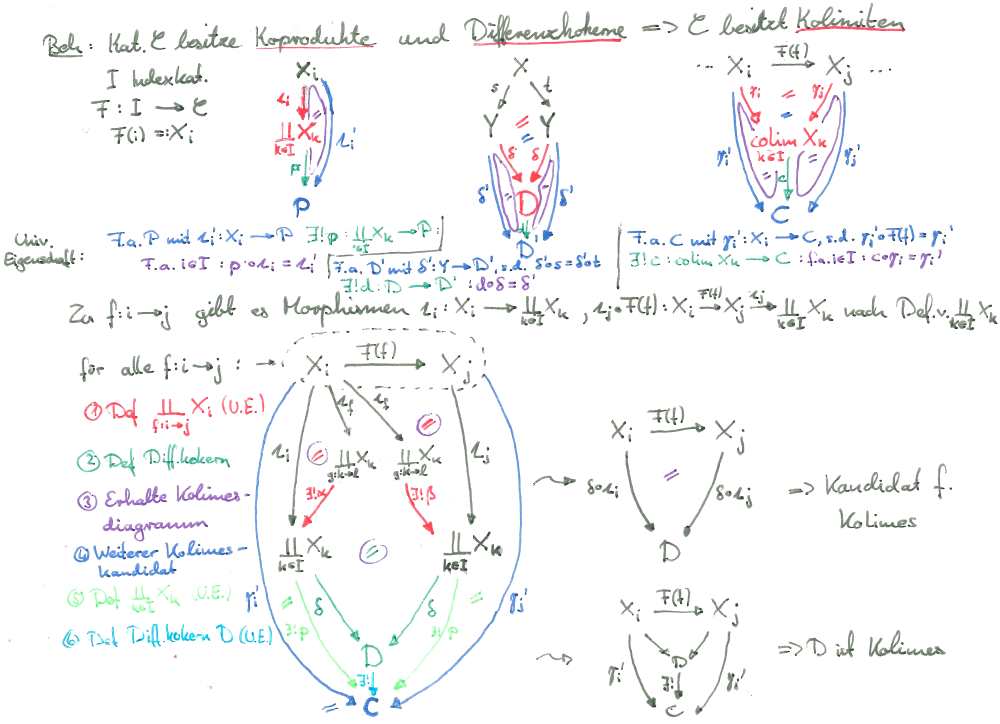 Beh: Kat. C besitze Koprodukte und Differenzkokerne => C besitzt Kolimiten
I Indexkat.
F : I → C
F(i) =: Xᵢ
Xᵢ
∐ Xₖ
k∈I
P
X
s t
Y = Y
δ δ
δ' D δ'
D'
··· Xᵢ F(f) → Xⱼ ···
γᵢ = γⱼ
colim Xₖ
k∈I
γᵢ' c γⱼ'
C
Univ. Eigenschaft:
F.a. P mit ιᵢ' : Xᵢ → P ∃! p : ∐ Xₖ → P :
F.a. i∈I : p∘ιᵢ = ιᵢ'
F.a. D' mit δ' : Y → D', s.d. δ'∘s = δ'∘t
∃! d : D → D' : d∘δ = δ'
F.a. C mit γᵢ' : Xᵢ → C, s.d. γⱼ'∘F(f) = γᵢ'
∃! c : colim Xₖ → C : f.a. i∈I : c∘γᵢ = γᵢ'
Zu f: i→j gibt es Morphismen ιᵢ : Xᵢ → ∐ Xₖ , ιⱼ∘F(f) : Xᵢ F(f) → Xⱼ ιⱼ → ∐ Xₖ nach Def. v. ∐ Xₖ
für alle f: i→j : → Xᵢ F(f) → Xⱼ
① Def ∐ Xᵢ (U.E.)
f:i→j
② Def Diff.kokern
③ Erhalte Kolimes-
diagramm
④ Weiterer Kolimes-
kandidat
⑤ Def ∐ Xₖ (U.E.)
k∈I
⑥ Def Diff.kokern D (U.E.)
ιᵢ ι_f ι_f ιⱼ
∐ Xₖ ∐ Xₖ
g:k→l g:k→l
∃!α ∃!β
∐ Xₖ ∐ Xₖ
k∈I k∈I
γᵢ' = δ δ = γⱼ'
∃!p ∃!p
D
∃!
= C
Xᵢ F(f) → Xⱼ
δ∘ιᵢ = δ∘ιⱼ
D
=> Kandidat f.
Kolimes
Xᵢ F(f) → Xⱼ
γᵢ' D γⱼ'
∃!
C
=> D ist Kolimes